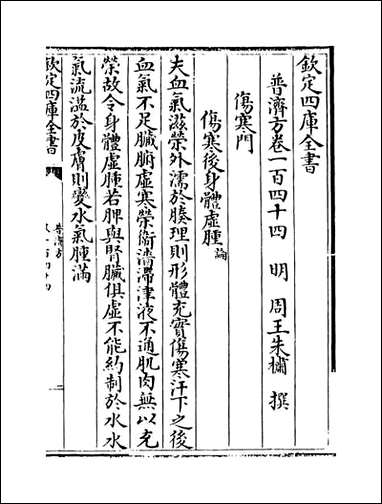 欽定四庫全書
普濟方卷一百四十四　明　周王朱橚　撰
傷寒門
傷寒後身體虛腫論
夫血氣滋榮外濡於腠理則形體充實傷寒汗下之後
血氣不足臟腑虛寒榮衛濇滯津液不通肌肉無以充
榮故令身體虛腫若脾與腎臟俱虛不能約制於水水
氣流溢於皮膚則變水氣腫滿
欽定四庫全書
普濟方
卷一百四十四
一